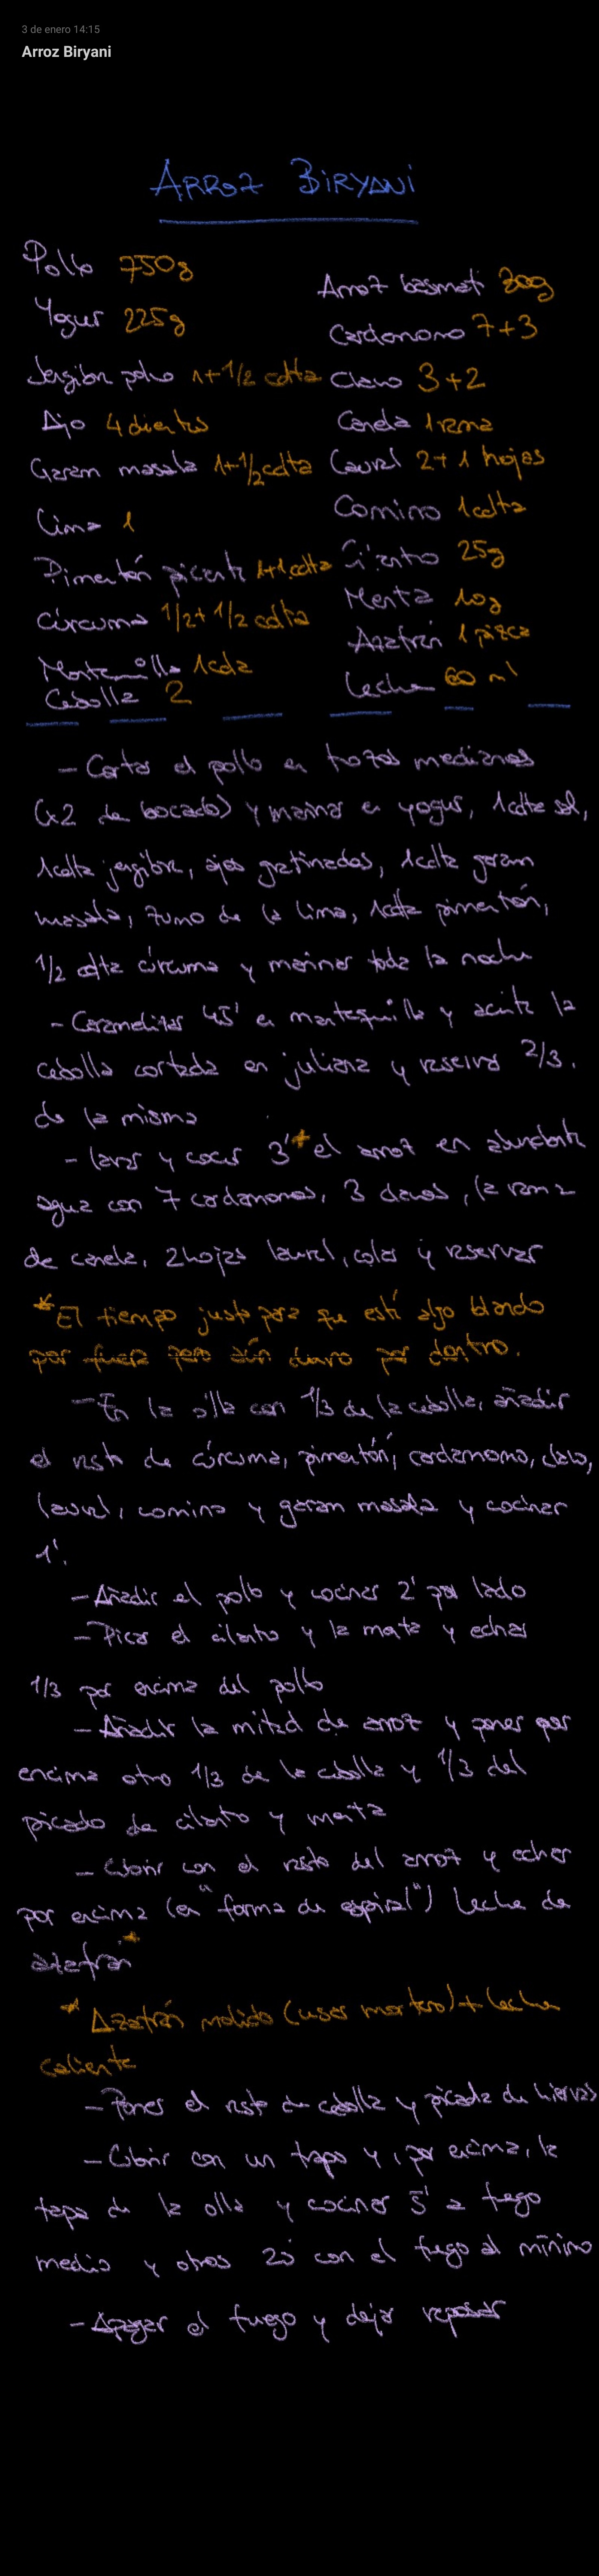 3 de enero 14:15
Arroz Biryani
ARROZ BIRYANI
Pollo 750g
Yogur 225g
Jengibre polvo 1+1/2 cdta
Ajo 4 dientes
Garam masala 1+1/2 cdta
Lima 1
Pimentón picante 1+1 cdta
Cúrcuma 1/2+1/2 cdta
Mantequilla 1cda
Cebolla 2
Arroz basmati 300g
Cardamomo 7+3
Clavo 3+2
Canela 1 rama
Laurel 2+1 hojas
Comino 1cdta
Cilantro 25g
Menta 10g
Azafrán 1 pizca
Leche 60 ml
- Cortar el pollo en trozos medianos
(x2 de bocado) y marinar en yogur, 1cdta sal,
1cdta jengibre, ajos gratinados, 1cdta garam
masala, zumo de la lima, 1cdta pimentón,
1/2 cdta cúrcuma y marinar toda la noche
- Caramelizar 45' en mantequilla y aceite la
cebolla cortada en juliana y reservar 2/3
de la misma
- lavar y cocer 3'* el arroz en abundante
agua con 7 cardamomos, 3 clavos, la rama
de canela, 2 hojas laurel, colar y reservar
* El tiempo justo para que esté algo blando
por fuera pero aún duro por dentro.
- En la olla con 1/3 de la cebolla, añadir
el resto de cúrcuma, pimentón, cardamomo, clavo,
laurel, comino y garam masala y cocinar
1'.
- Añadir el pollo y cocinar 2' por lado
- Picar el cilantro y la menta y echar
1/3 por encima del pollo
- Añadir la mitad de arroz y poner por
encima otro 1/3 de la cebolla y 1/3 del
picado de cilantro y menta
- Cubrir con el resto del arroz y echar
por encima (en "forma de espiral") leche de
azafrán*
* Azafrán molido (usar mortero) + leche
caliente
- Poner el resto de cebolla y picada de hiervas
- Cubrir con un trapo y, por encima, la
tapa de la olla y cocinar 5' a fuego
medio y otros 25' con el fuego al mínimo
- Apagar el fuego y dejar reposar